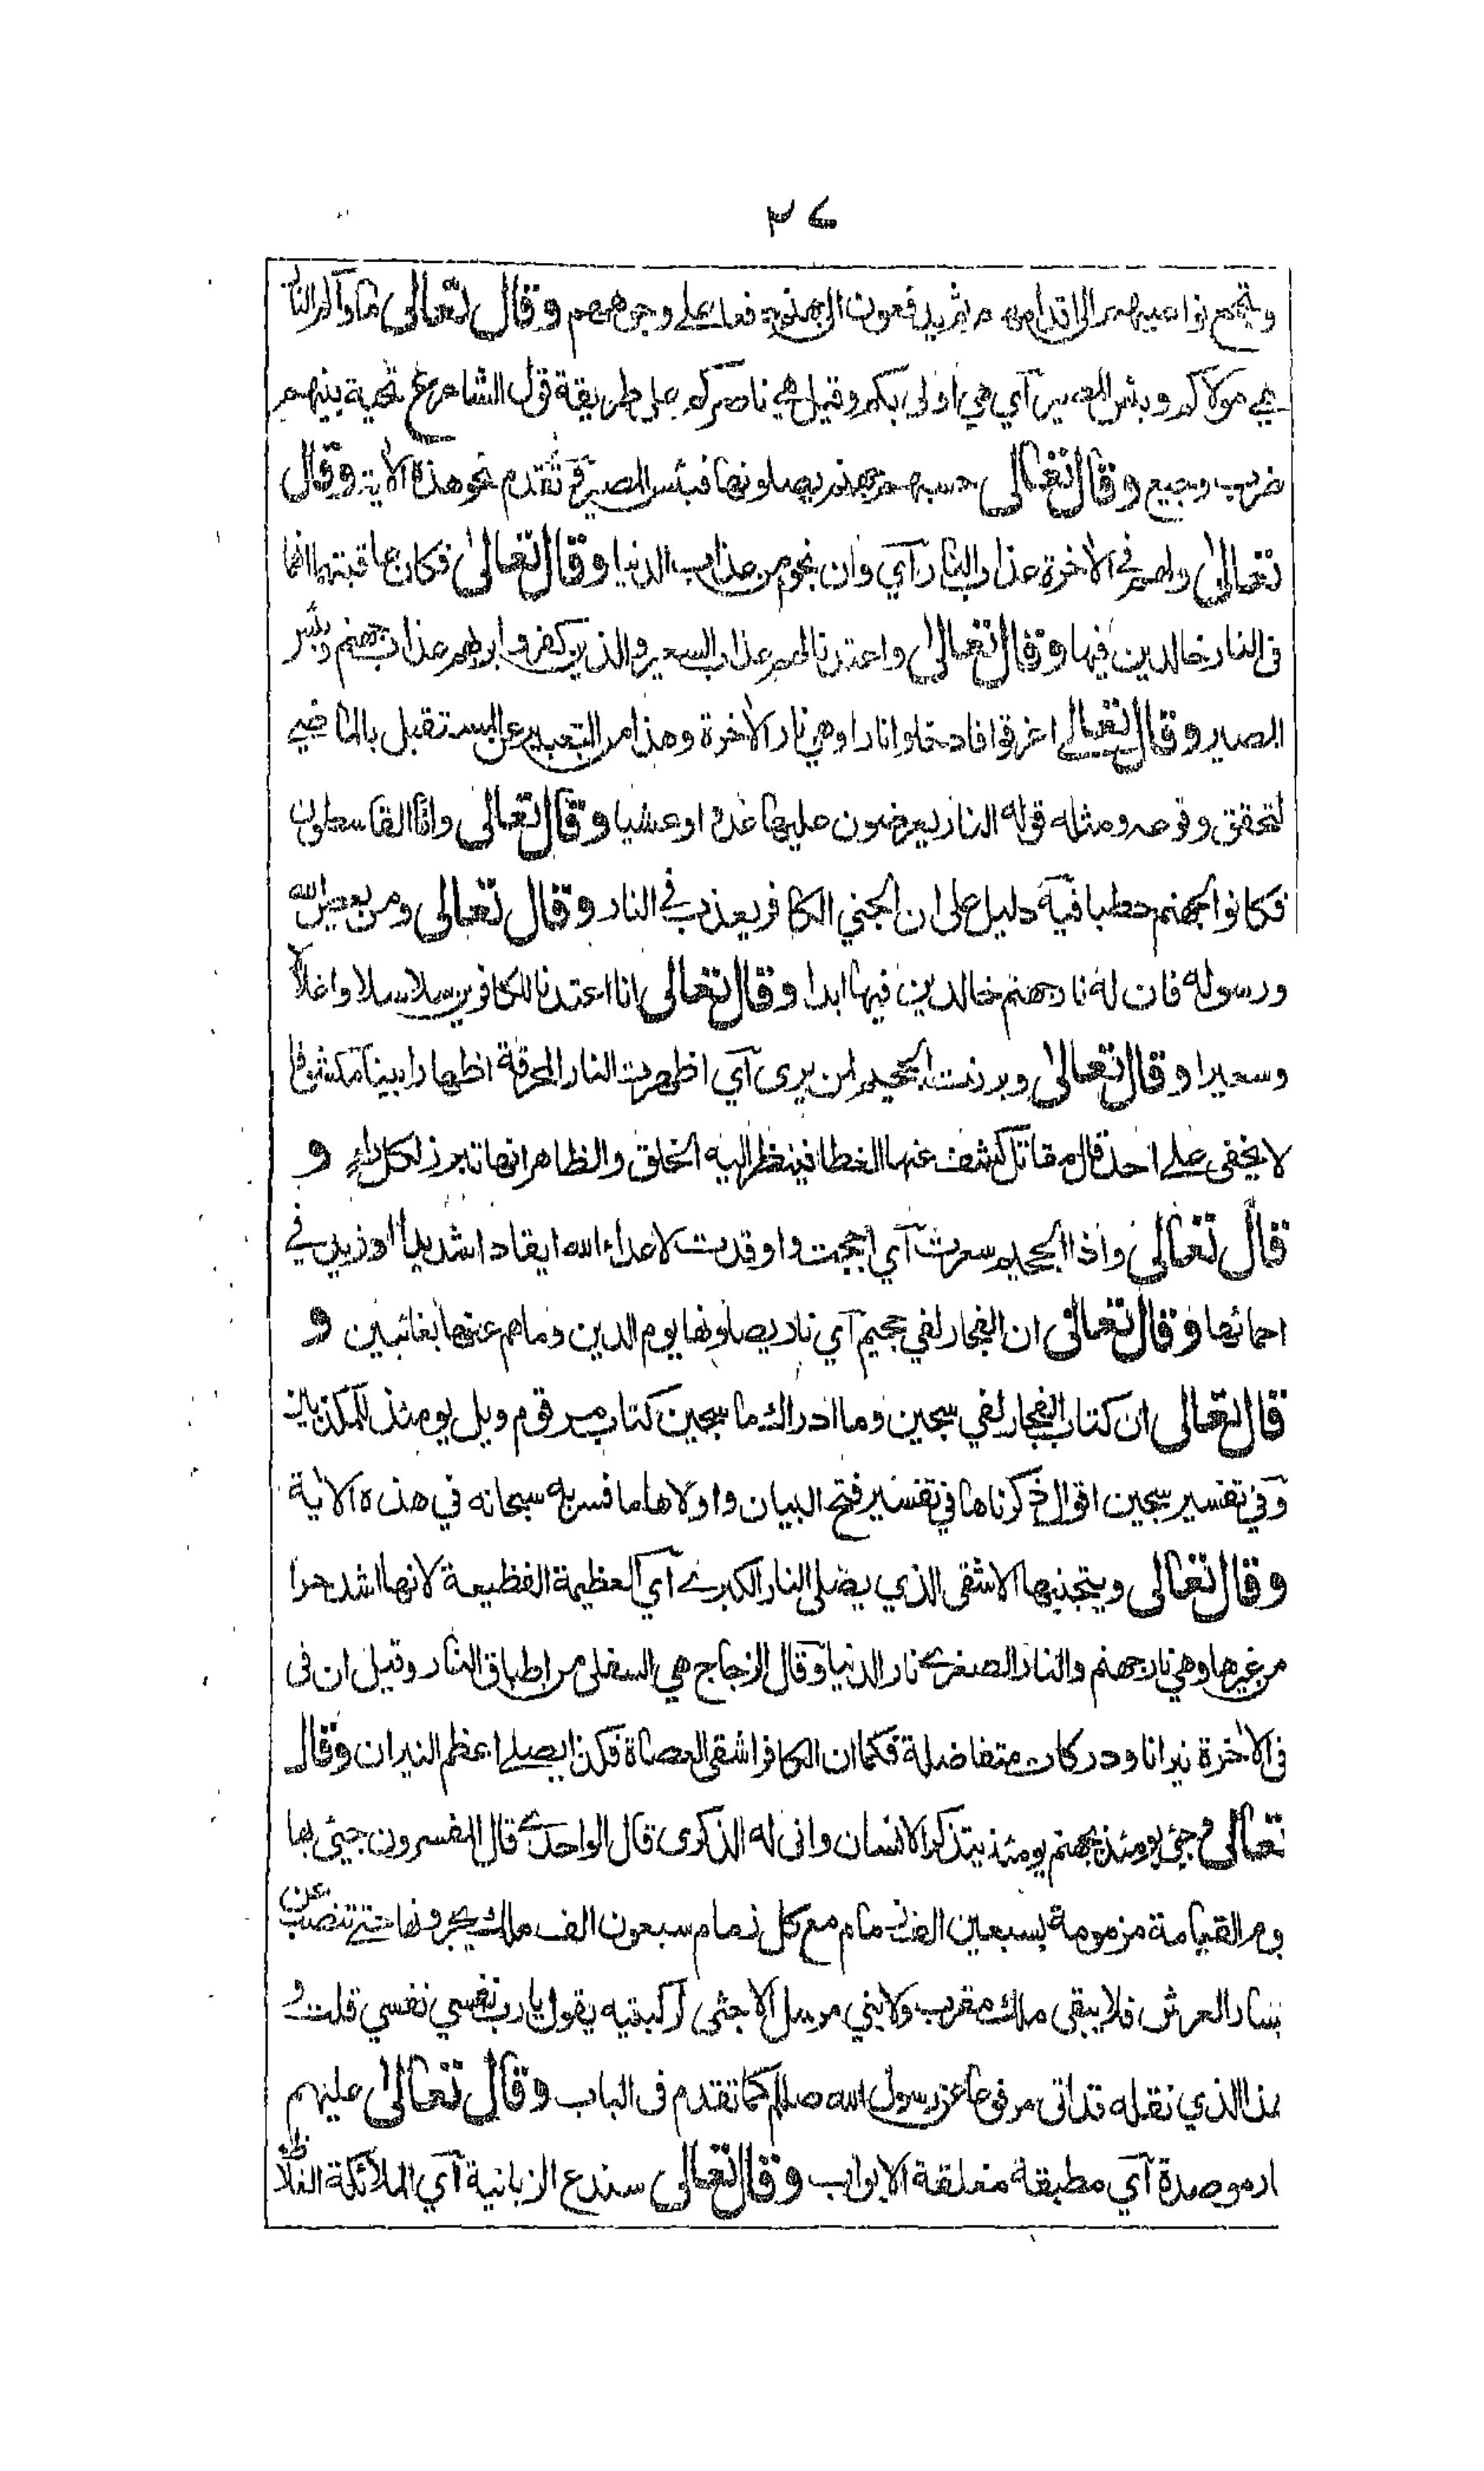 ٣٤
وتجمع نواصيهم الى اقدامهم ثم يدفعون الى جهنم دفعا على وجوههم وقال تعالى ماواكم النار
هي مولاكم وبئس المصير آي هي اولى بكم وقيل هي ناصركم على طريقة قول الشاعر ع تحية بينهم
ضرب وجيع وقال تعالى حسبهم جهنم يصلونها فبئس المصير تقدم نحو هذه الآية وقال
تعالى ولهم في الاخرة عذاب النار آي وان نجوا من عذاب الدنيا وقال تعالى فكان عاقبتهما انهما
فى النار خالدين فيها وقال تعالى واعتدنا لهم عذاب السعير وللذين كفروا بربهم عذاب جهنم وبئس
المصير وقال تعالى اغرقوا فادخلوا نارا وهي نار الآخرة وهذا من التعبير عن المستقبل بالماضي
لتحقق وقوعه ومثله قوله النار يعرضون عليها غدوا وعشيا وقال تعالى واما القاسطون
فكانوا لجهنم حطبا فيه دليل على ان الجني الكافر يعذب في النار وقال تعالى ومن يعص الله
ورسوله فان له نار جهنم خالدين فيها ابدا وقال تعالى انا اعتدنا للكافرين سلاسلا واغلالا
وسعيرا وقال تعالى وبرزت الجحيم لمن يرى آي اظهرت النار المحرقة اظهارا بينا مكشوفا
لا يخفى على احد قال مقاتل كشف عنها الغطا فينظر اليه الخلق والظاهر انها تبرز لكل راء و
قال تعالى واذا الجحيم سعرت آي اججت واوقدت لاعداء الله ايقادا شديدا او زيد في
احمائها وقال تعالى ان الفجار لفي جحيم آي نار يصلونها يوم الدين وما هم عنها بغائبين و
قال تعالى ان كتاب الفجار لفي سجين وما ادراك ما سجين كتاب مرقوم ويل يومئذ للمكذبين
وفي تفسير سجين اقوال ذكرناها في تفسير فتح البيان واولاها ما فسر به سبحانه في هذه الاية
وقال تعالى ويتجنبها الاشقى الذي يصلى النار الكبرى آي العظيمة الفظيعة لانها اشد حرا
من غيرها وهي نار جهنم والنار الصغرى نار الدنيا وقال الزجاج هي السفلى من اطباق النار وقيل ان فى
فى الاخرة نيرانا ودركات متفاضلة فكما ان الكافر اشقى العصاة فكذا يصلى اعظم النيران وقال
تعالى وجئ يومئذ بجهنم يومئذ يتذكر الانسان وانى له الذكرى قال الواحدي قال المفسرون جيئ بها
يوم القيامة مزمومة بسبعين الف زمام مع كل زمام سبعون الف ملك يجرونها حتى تنصب عن
يسار العرش فلا يبقى ملك مقرب ولا نبي مرسل الا جثى لركبتيه يقول يا رب نفسي نفسي قلت و
هذا الذي نقله قد اتى مرفوعا عن رسول الله صللم كما تقدم فى الباب وقال تعالى عليهم
نار موصدة آي مطبقة مغلقة الابواب وقال تعالى سندع الزبانية آي الملائكة الغلاظ